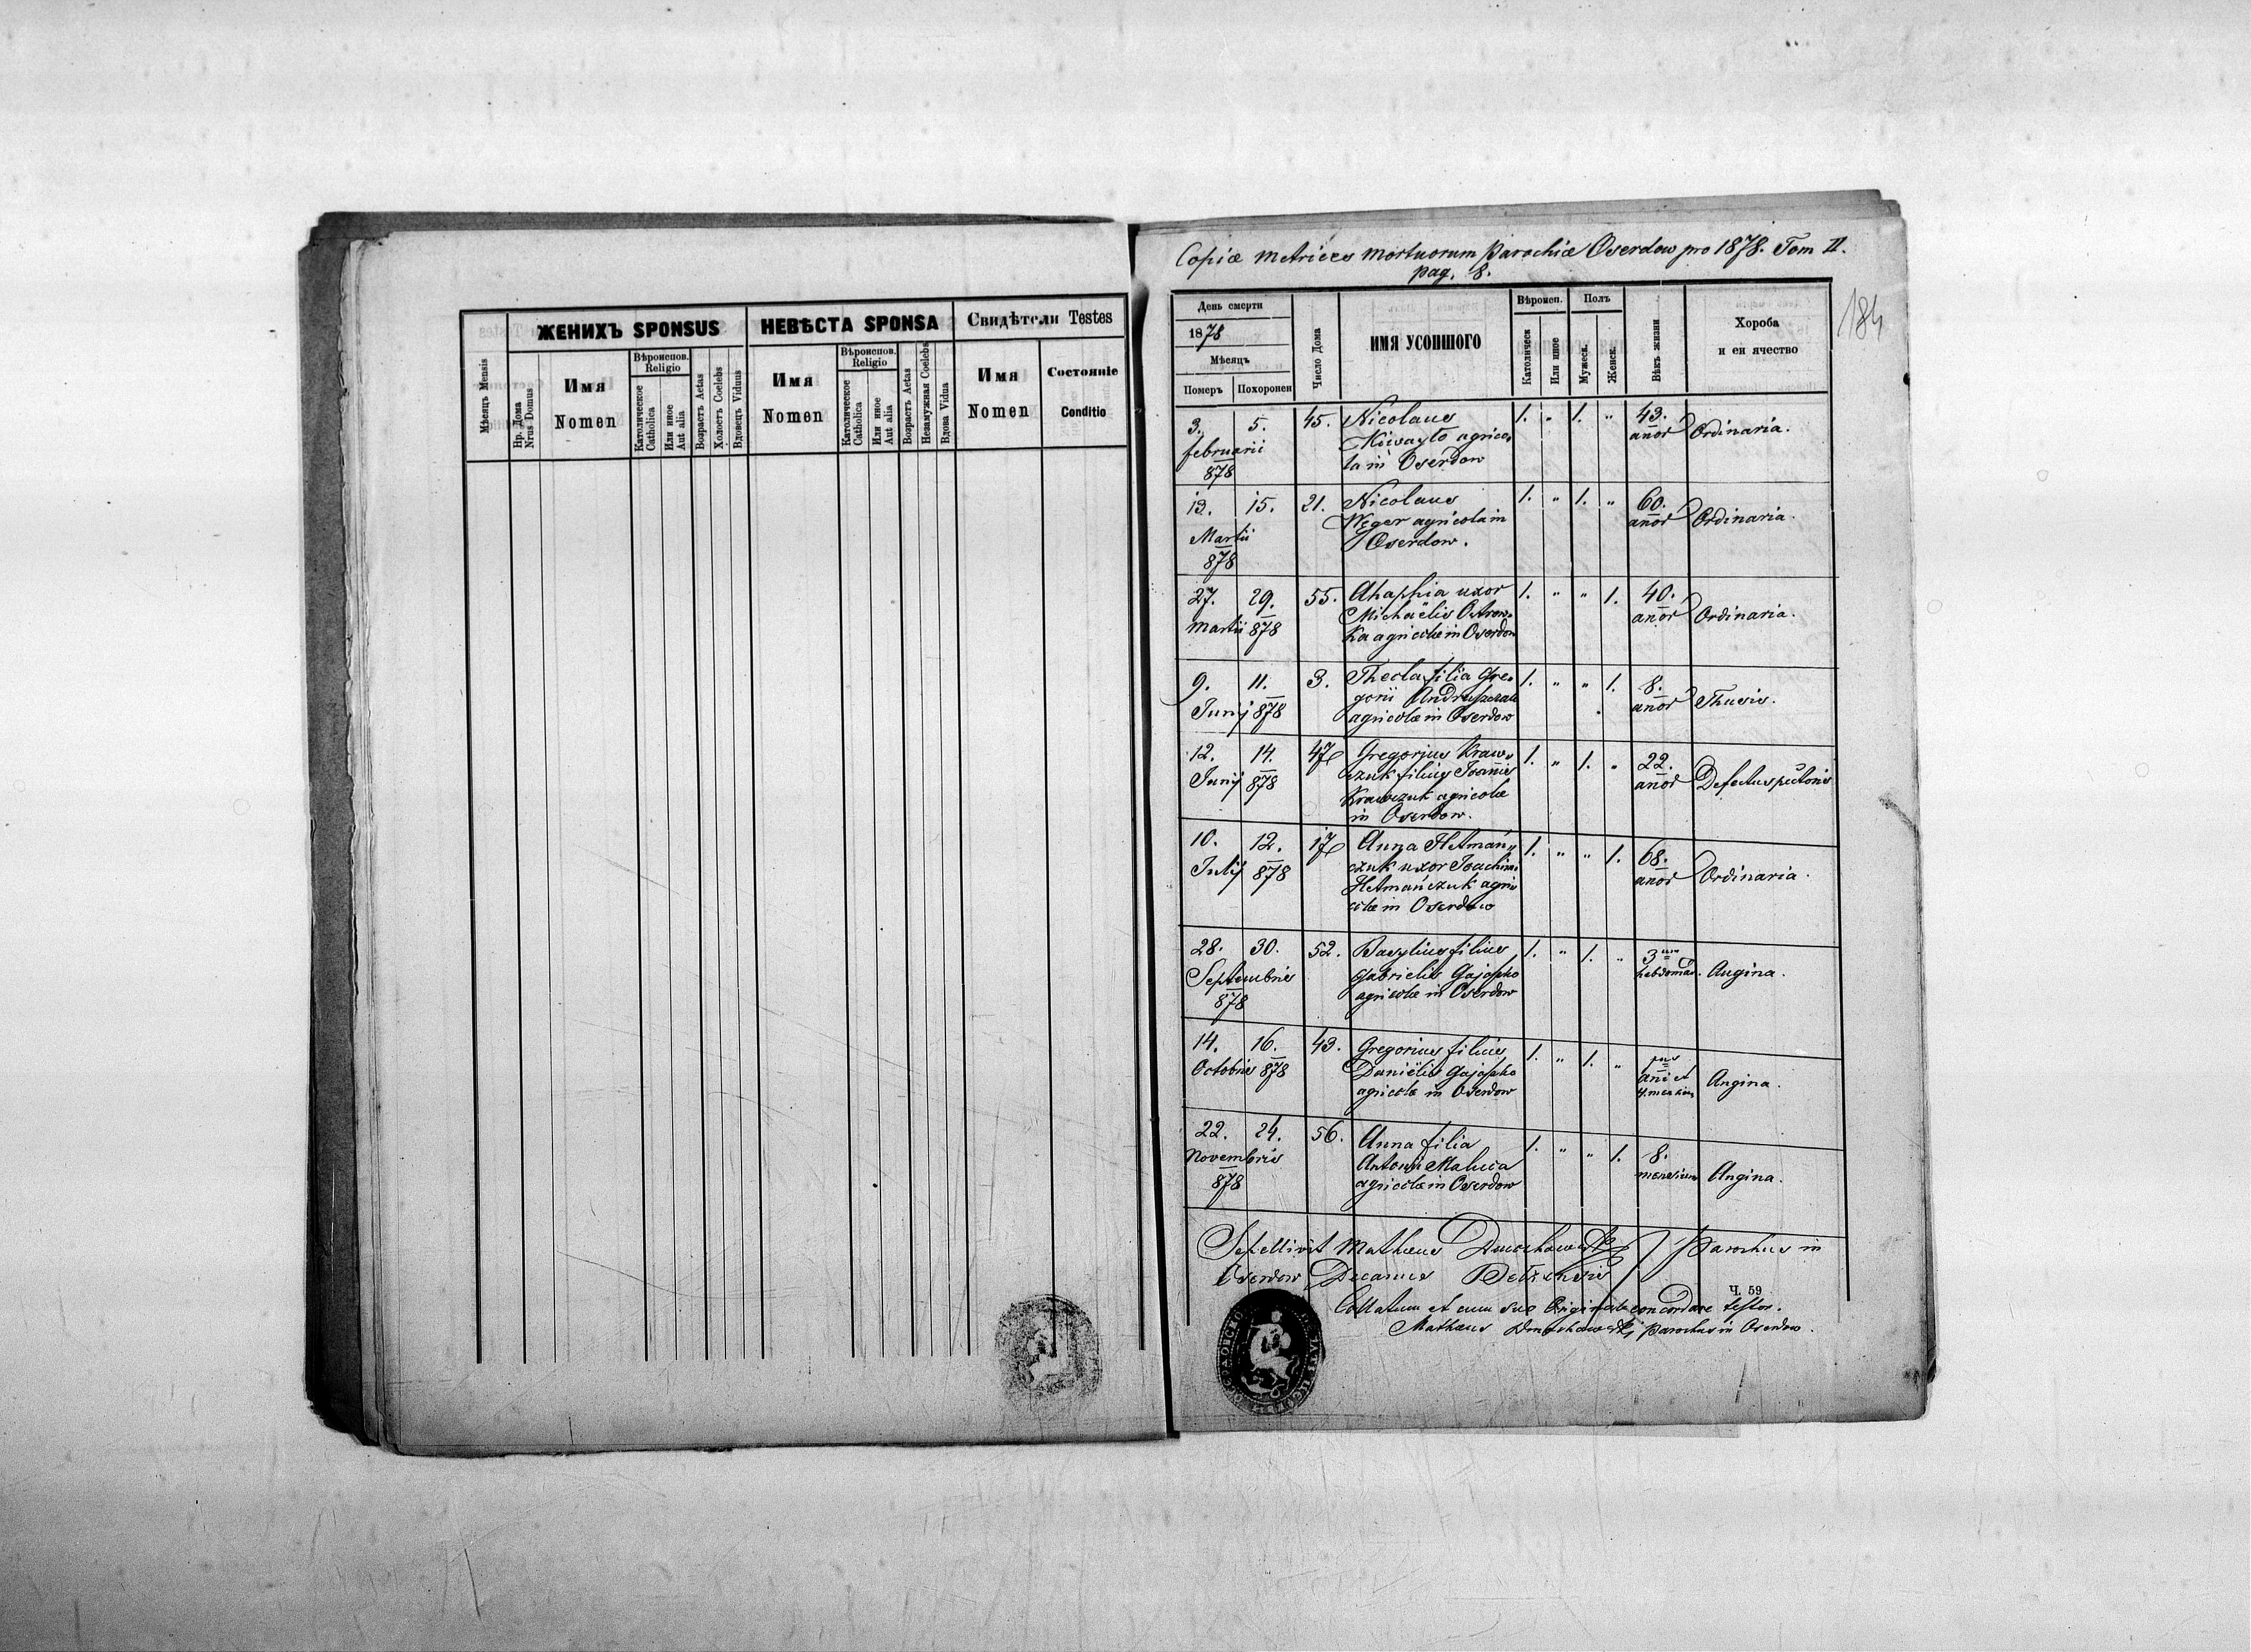 Мѣсяцъ Mensis
ЖЕНИХЪ SPONSUS
НЕВѢСТА SPONSA
Свидѣтели Testes
Нр. Дома
Nrus Domus
Имя
Nomen
Вѣроиспов.
Religio
Католическое
Catholica
Или иное
Aut alia
Возрастъ Aetas
Холостъ Coelebs
Вдовецъ Viduus
Имя
Nomen
Вѣроиспов.
Religio
Католическое
Catholica
Или иное
Aut alia
Возрастъ Aetas
Незамужная Coelebs
Вдова Vidua
Имя
Nomen
Состоянiе
Conditio
Copiæ metrices mortuorum parochiæ Oserdow pro 1878. Tom II.
pag. 8.
184
День смерти
1878
Мѣсяцъ
Померъ Похоронен
Число Дома
ИМЯ УСОПШОГО
Вѣроисп.
Католическ
Или иное
Полъ
Мужеск.
Женск.
Вѣкъ жизни
Хороба
и еи ячество
3. 5. 45. Nicolaus 1. „ 1. „ 43.
februarii agrico- anor Ordinaria.
878 la in Oserdow
13. 15. 21. Nicolaus 1. „ 1. „ 60.
Martii Węger agricola in anor Ordinaria.
878 Oserdow.
27. 29. 55. Ahaphia uxor 1. „ „ 1. 40.
Martii 878 Michaëlis Ostrow- anor Ordinaria.
ka agricolæ in Oserdow
9. 11. 3. Thecla filia Gre- 1. „ „ 1. 8.
Junij 878 gorii anor Thusis.
agricolæ in Oserdow
12. 14. 47 Gregorius Kraw- 1. „ 1. „ 22.
Junij 878 czuk filius Joannis anor Defectus
Krawczuk agricolæ
in Oserdow.
10. 12. 17 Anna Hetmań- 1. „ „ 1. 68.
Julij 878 czuk uxor Joachimi anor Ordinaria.
Hetmańczuk agri-
colæ in Oserdow
28. 30. 52. Basylius filius 1. „ 1. „ 3
Septembris Gabrielis Gajoszko hebdomad. Angina.
878 agricolæ in Oserdow
14. 16. 43. Gregorius filius 1. „ 1. „
Octobris 878 Daniëlis Gajoszko ani et Angina.
agricolæ in Oserdow 4. mensium
22. 24. 56. Anna filia 1. „ „ 1. 8.
Novembris Antonii Maluca mensium Angina.
878 agricolæ in Oserdow
Sepellivit Mathæus Dmochowski Parochus in
Oserdow Decanus Belzensis
Ч. 59
Collatum et cum suo Originale concordare testor.
Mathæus Dmochowski, parochus in Oserdow.